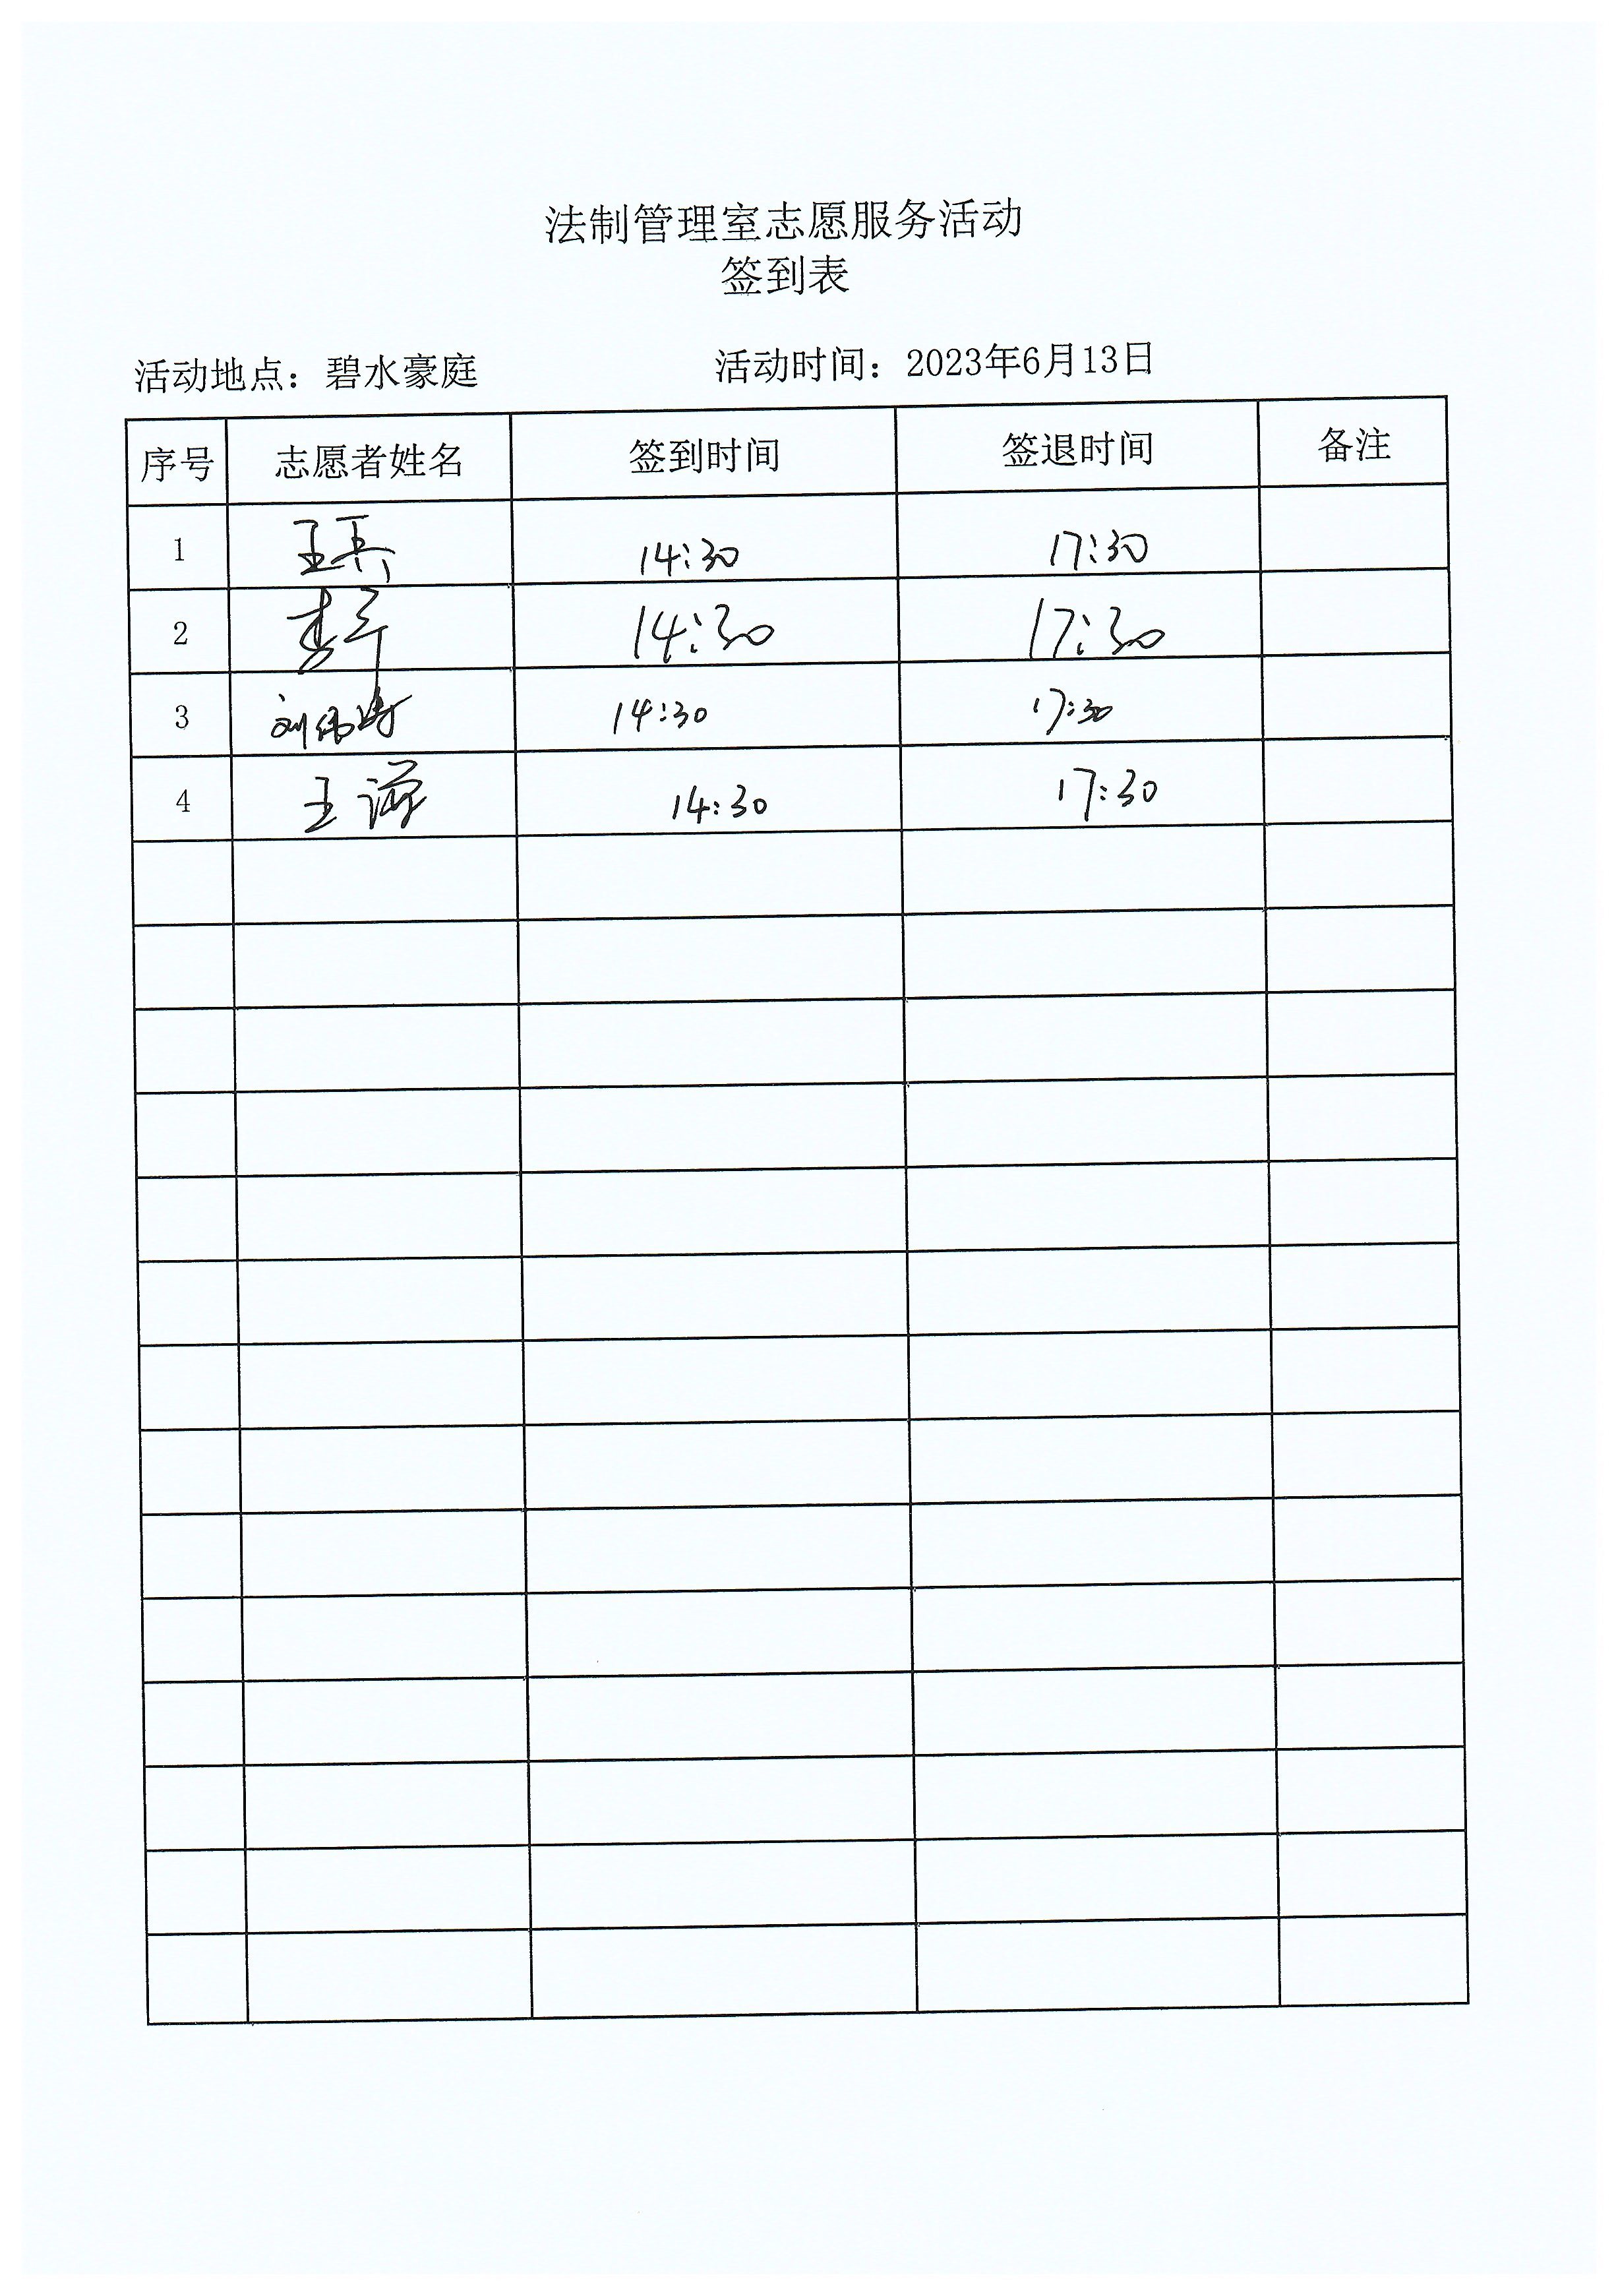 法制管理室志愿服务活动
签到表
活动地点：碧水豪庭 活动时间：2023年6月13日
序号 志愿者姓名 签到时间 签退时间 备注
1 王兵 14:30 17:30
2 李 14:30 17:30
3 刘伟涛 14:30 17:30
4 王 14:30 17:30